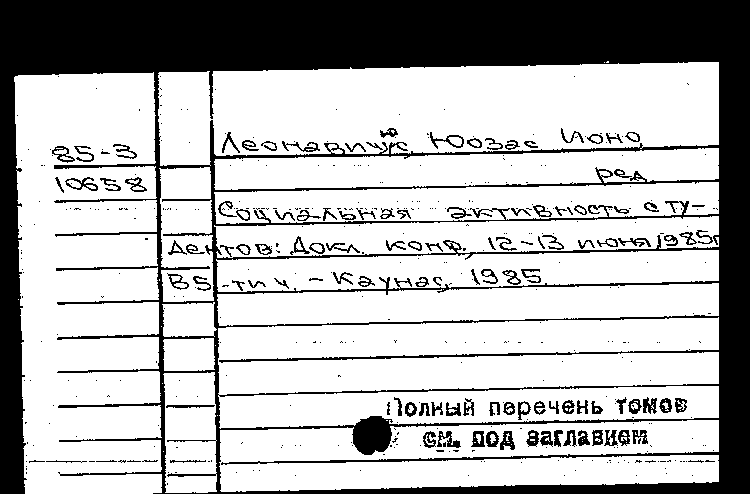 85-3
10658
Леонавичюс Юозас Ионо,
ред.
Социальная активность сту-
дентов: Докл. конф., 12-13 июня 1985г
В 5-ти ч. - Каунас, 1985.
Полный перечень томов
см. под заглавием